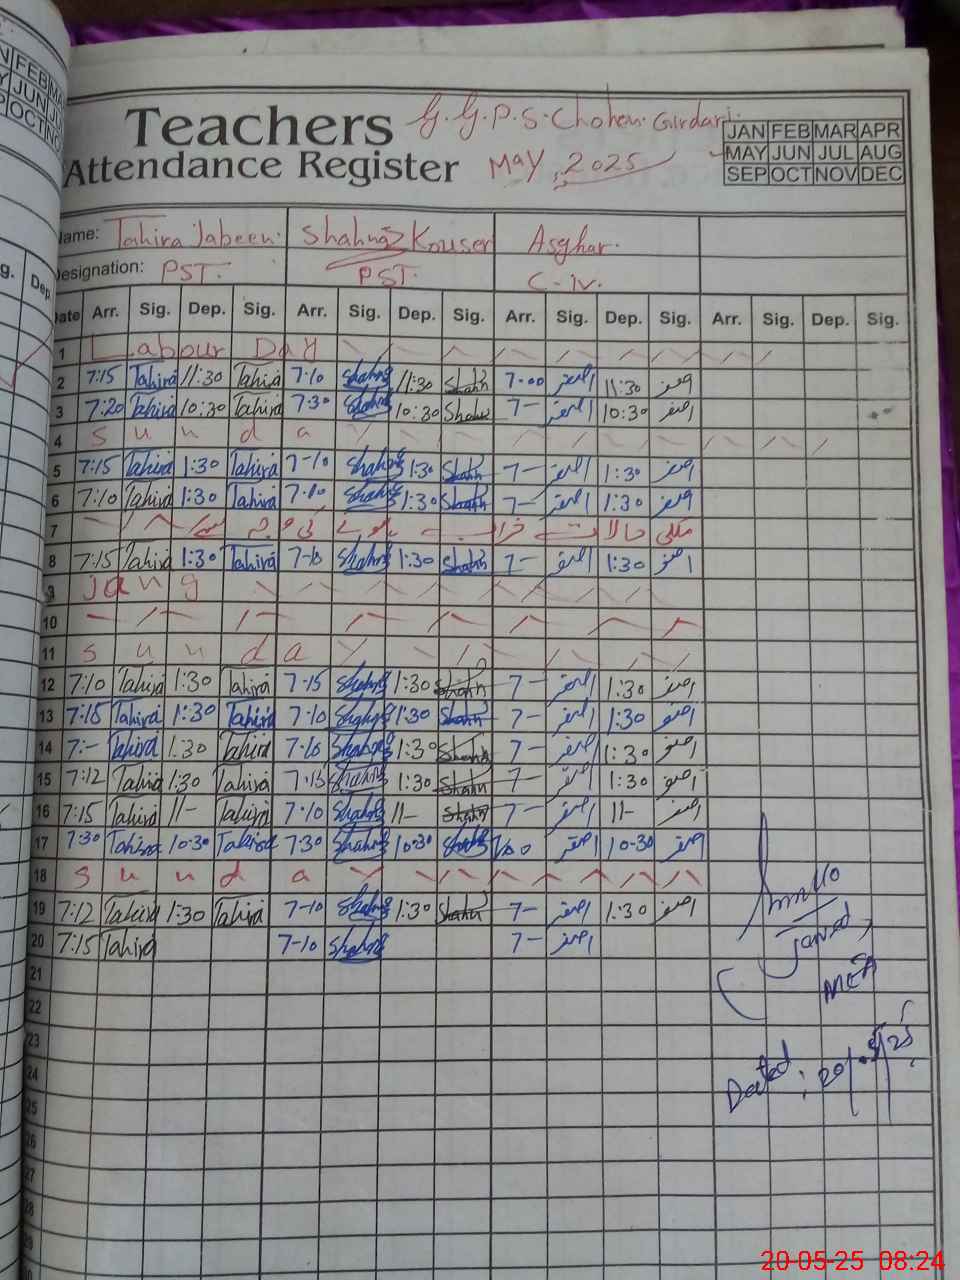 Teachers G.G.P.S. Chohan Girdari.
Attendance Register May, 2025
JAN FEB MAR APR
MAY JUN JUL AUG
SEP OCT NOV DEC
Name: Tahira Jabeen. Shahnaz Kouser Asghar.
Designation: PST. PST. C-IV.
Date Arr. Sig. Dep. Sig. Arr. Sig. Dep. Sig. Arr. Sig. Dep. Sig. Arr. Sig. Dep. Sig.
1 Labour Day
2 7:15 Tahira 11:30 Tahira 7-10 Shahnaz 11:30 Shahn 7-00 اصغر 11:30 اصغر
3 7:20 Tahira 10:30 Tahira 7-30 Shahnaz 10:30 Shahn 7- اصغر 10:30 اصغر
4 Sunday
5 7:15 Tahira 1:30 Tahira 7-10 Shahnaz 1:30 Shahn 7- اصغر 1:30 اصغر
6 7:10 Tahira 1:30 Tahira 7-10 Shahnaz 1:30 Shahn 7- اصغر 1:30 اصغر
7 ملکی حالات خراب ہونے کی وجہ سے
8 7:15 Tahira 1:30 Tahira 7-10 Shahnaz 1:30 Shahn 7- اصغر 1:30 اصغر
9 Jang
10
11 Sunday
12 7:10 Tahira 1:30 Tahira 7-15 Shahnaz 1:30 Shahn 7- اصغر 1:30 اصغر
13 7:15 Tahira 1:30 Tahira 7-10 Shahnaz 1:30 Shahn 7- اصغر 1:30 اصغر
14 7:- Tahira 1:30 Tahira 7-10 Shahnaz 1:30 Shahn 7- اصغر 1:30 اصغر
15 7:12 Tahira 1:30 Tahira Shahnaz 1:30 Shahn 7- اصغر 1:30 اصغر
16 7:15 Tahira 11- Tahira 7-10 Shahnaz 11- Shahn 7- اصغر 11- اصغر
17 7:30 Tahira 10-30 Tahira 7-30 Shahnaz 10-30 Shahnaz اصغر 10-30 اصغر
18 Sunday
19 7:12 Tahira 1:30 Tahira 7-10 Shahnaz 1:30 Shahn 7- اصغر 1:30 اصغر
20 7:15 Tahira 7-10 Shahnaz 7- اصغر
21
22
23
24
25
26
27
28
29
Javed,
MEA
Dated: 20/.5/25
20-05-25 08:24